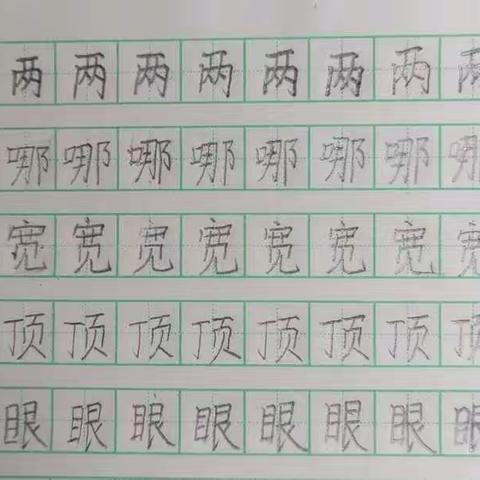 两两两两两两两两
哪哪哪哪哪哪哪哪
宽宽宽宽宽宽宽宽
顶顶顶顶顶顶顶顶
眼眼眼眼眼眼眼眼